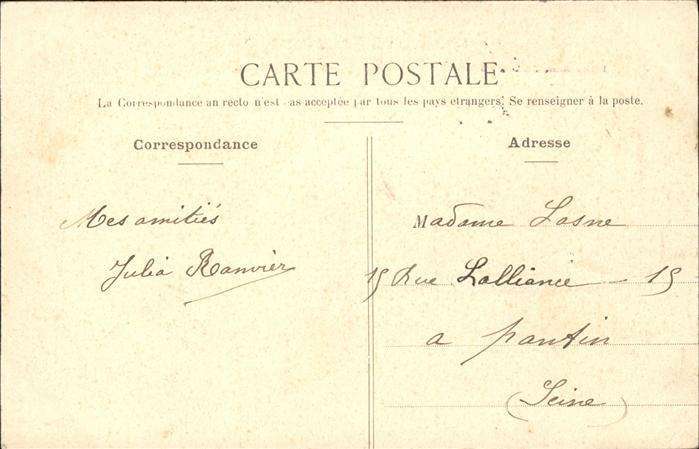 CARTE POSTALE
La Correspondance au recto n'est pas acceptée par tous les pays etrangers. Se renseigner à la poste.
Correspondance
Mes amitiés
Julia Ranvier
Adresse
Madame Lasne
15 Rue Lalliance - 15
a pantin
(Seine)